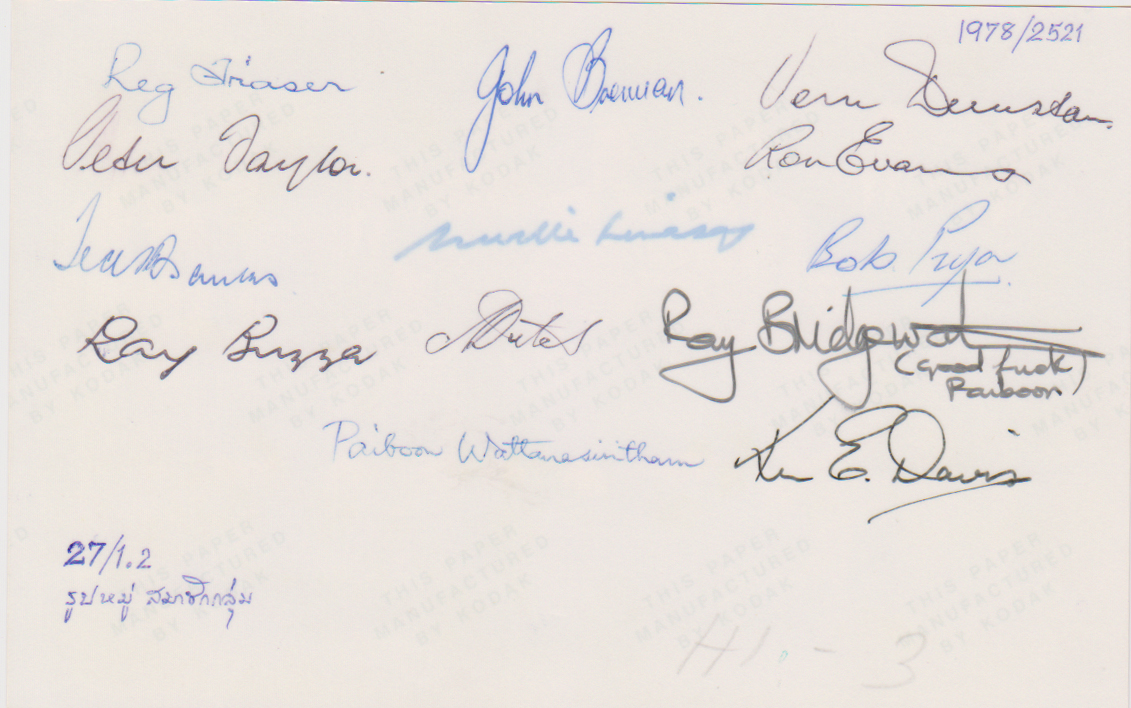 1978/2521
Reg Fraser John Bowman. Vern Dunstan
Peter Taylor. Ron Evans
Bob Pryor
Ray Buzza Ray Bridgewat
(Good luck)
Paiboon
Paiboon Wattanasiritham Ken E. Davis
27/1.2
รูปหมู่ สมาชิกกลุ่ม
H1 - 3
THIS PAPER
MANUFACTURED
BY KODAK